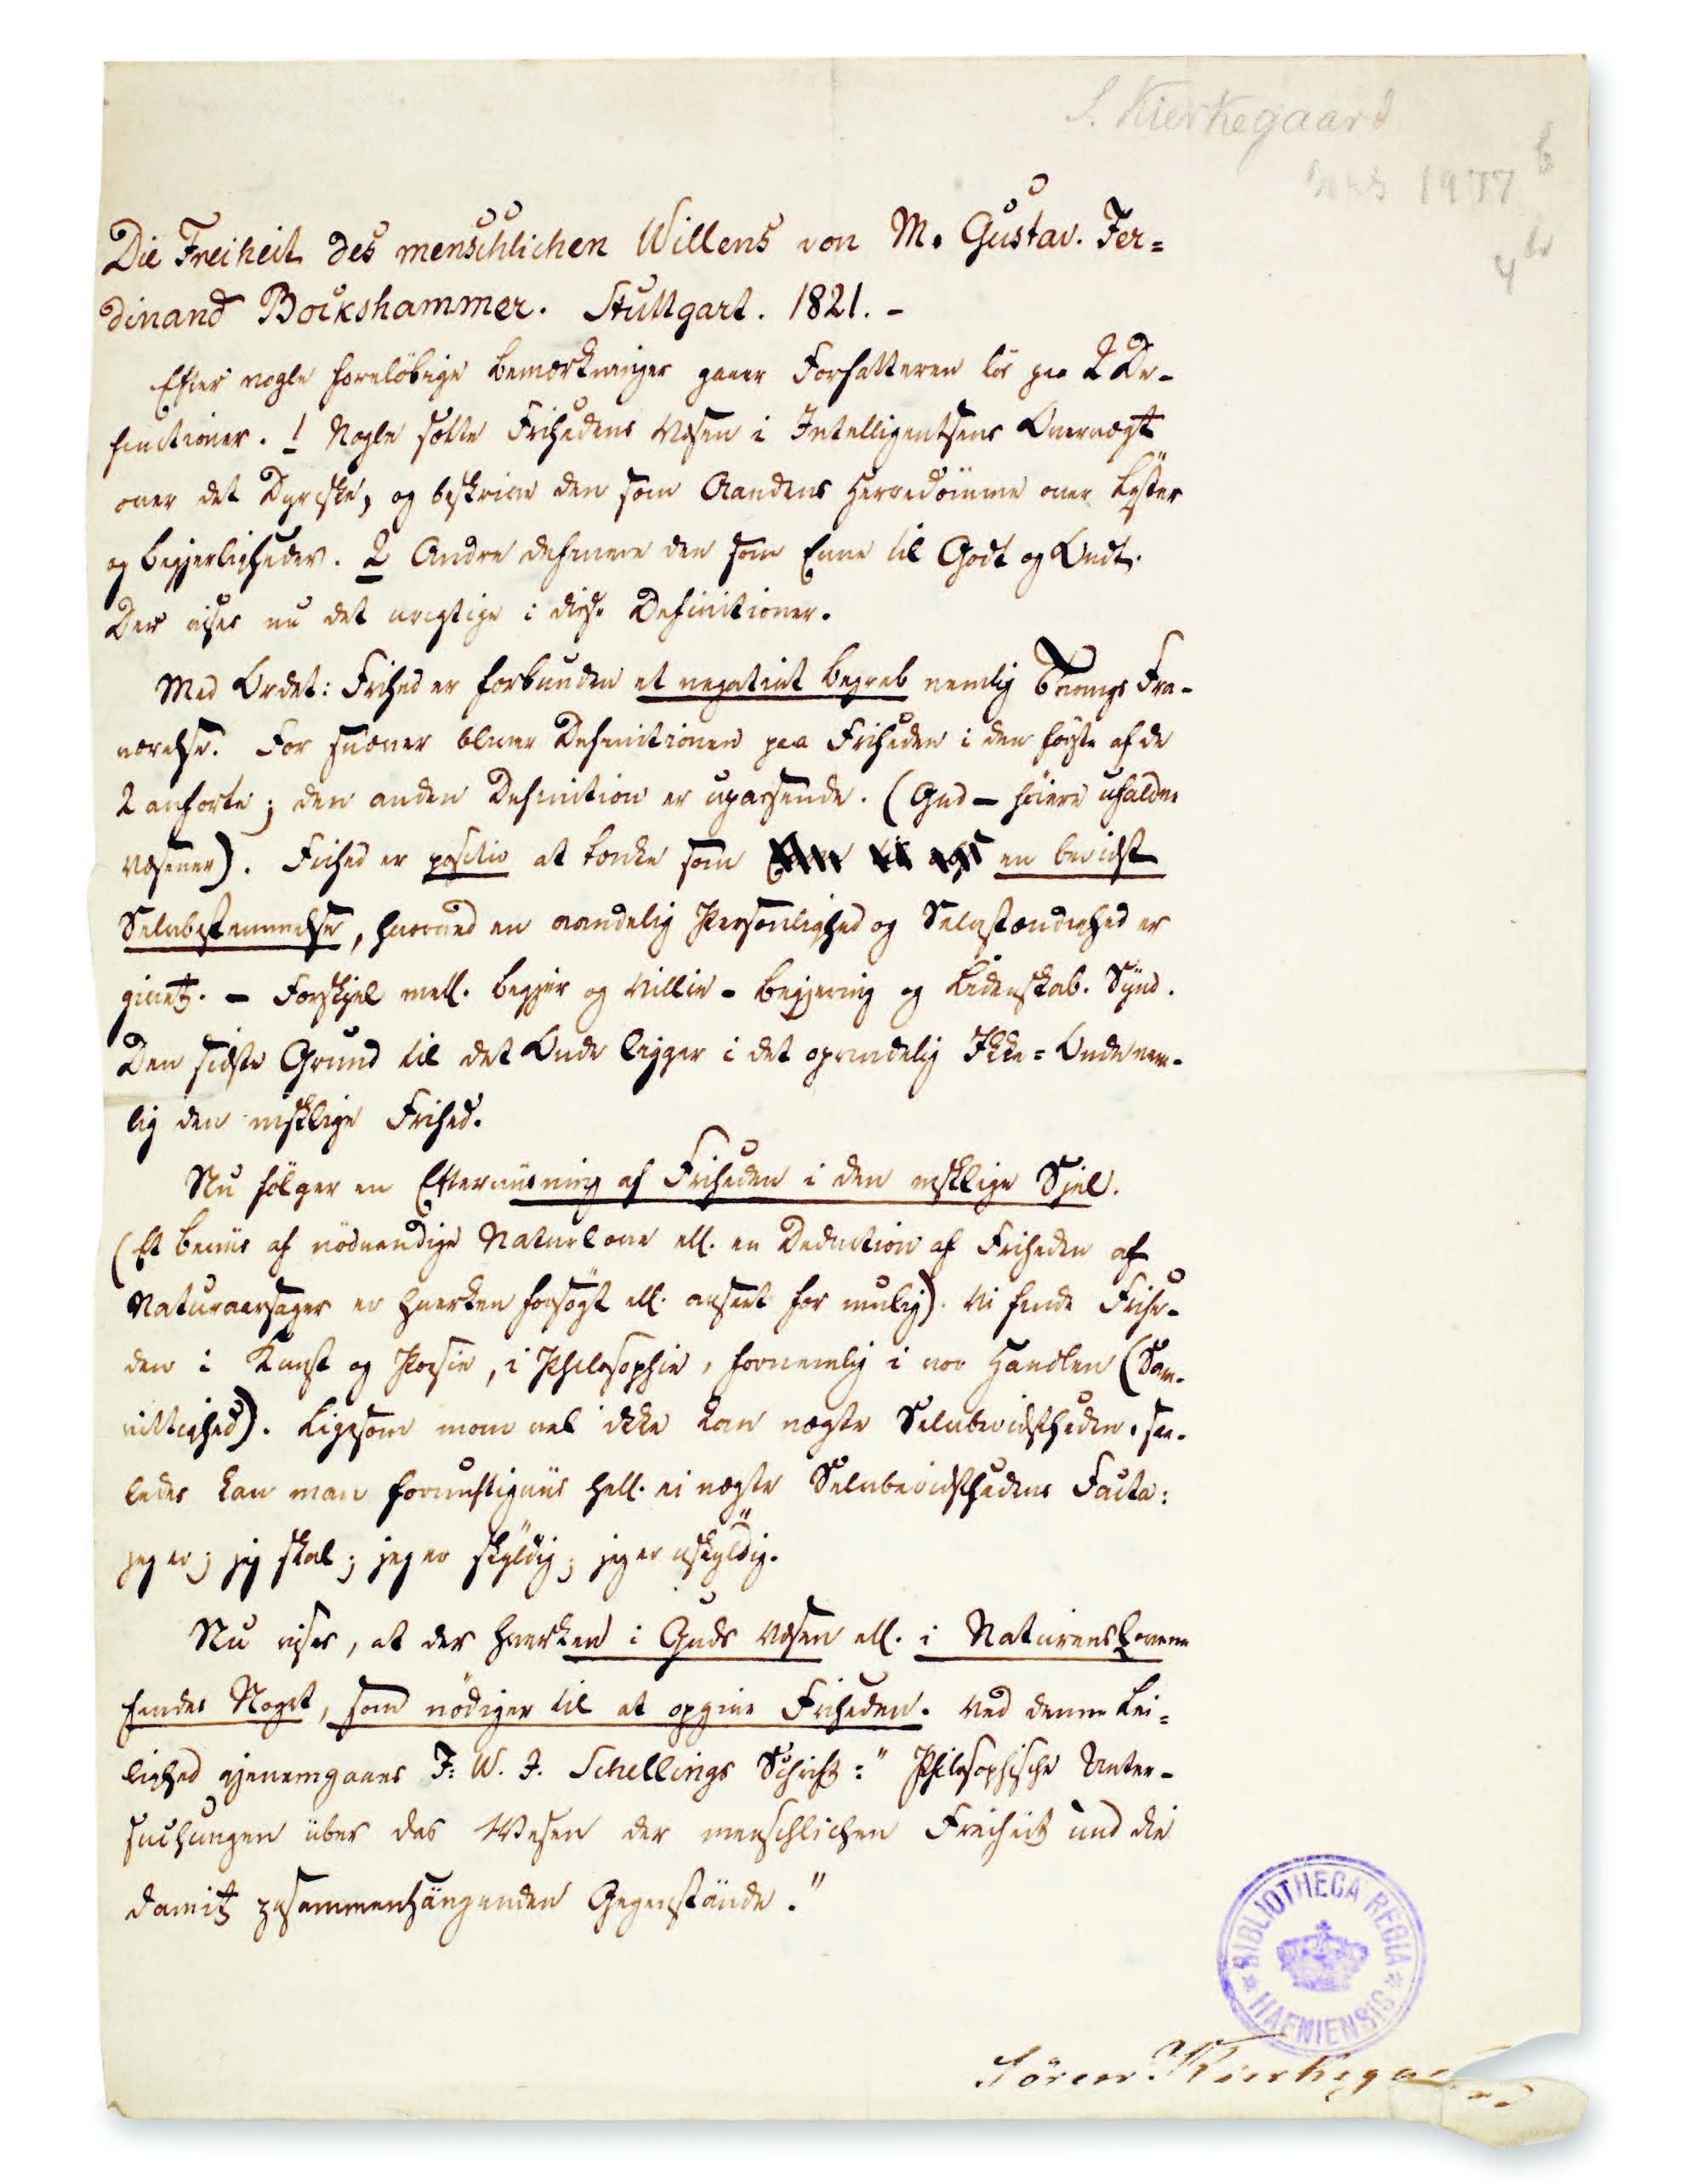 S. Kierkegaard
1977
Die Freiheit des menschlichen Willens von M. Gustav. Fer=
dinand Bockshammer. Stuttgart. 1821. -
Efter nogle foreløbige Bemærkninger gaaer Forfatteren løs paa 2 De-
finitioner. 1 Nogle sætte Frihedens Væsen i Intelligentsens Overvægt
over det Dyriske, og beskrive den som Aandens Herredömme over Lyster
og Begjerligheder. 2 Andre definere den som Evne til Godt og Ondt.
Der vises nu det urigtige i disse Definitioner.
Med Ordet: Frihed er forbunden et negativt Begreb nemlig Tvangs Fra-
værelse. For snæver bliver Definitionen paa Friheden i den første af de
2 anførte; den anden Definition er upassende. (Gud – høiere ufaldne
Væsener). Frihed er positiv at tænke som en bevidst
Selvbestemmelse, hvorved en aandelig Personlighed og Selvstændighed er
givet. – Forskjel mell. Begjer og Villie - Begjering og Lidenskab. Synd.
Den sidste Grund til det Onde ligger i det oprindelig Ikke=Onde nem-
lig den msklige Frihed.
Nu følger en Efterviisning af Friheden i den msklige Sjel.
(Et Beviis af nödvendige Naturlove ell. en Deduction af Friheden af
Naturaarsager er hverken forsøgt ell. anseet for mulig). Vi finde Frihe-
den i Kunst og Poesie, i Philosophie, fornemlig i vor Handlen (Sam-
vittighed). Ligesom man vel ikke kan nægte Selvbevidstheden, saa-
ledes kan man fornuftigviis hell. ei nægte Selvbevidsthedens Facta:
jeg er; jeg skal; jeg er skyldig; jeg er uskyldig.
Nu vises, at der hverken i Guds Væsen ell. i Naturens Lovene
findes Noget, som nödiger til at opgive Friheden. Ved denne Lei=
lighed gjenemgaaes F. W. J. Schellings Schrift: "Philosophische Unter-
suchungen über das Wesen der menschlichen Freiheit und die
damit zusammenhängenden Gegenstände."
BIBLIOTHECA REGIA
HAFNIENSIS
Sören Kierkegaard